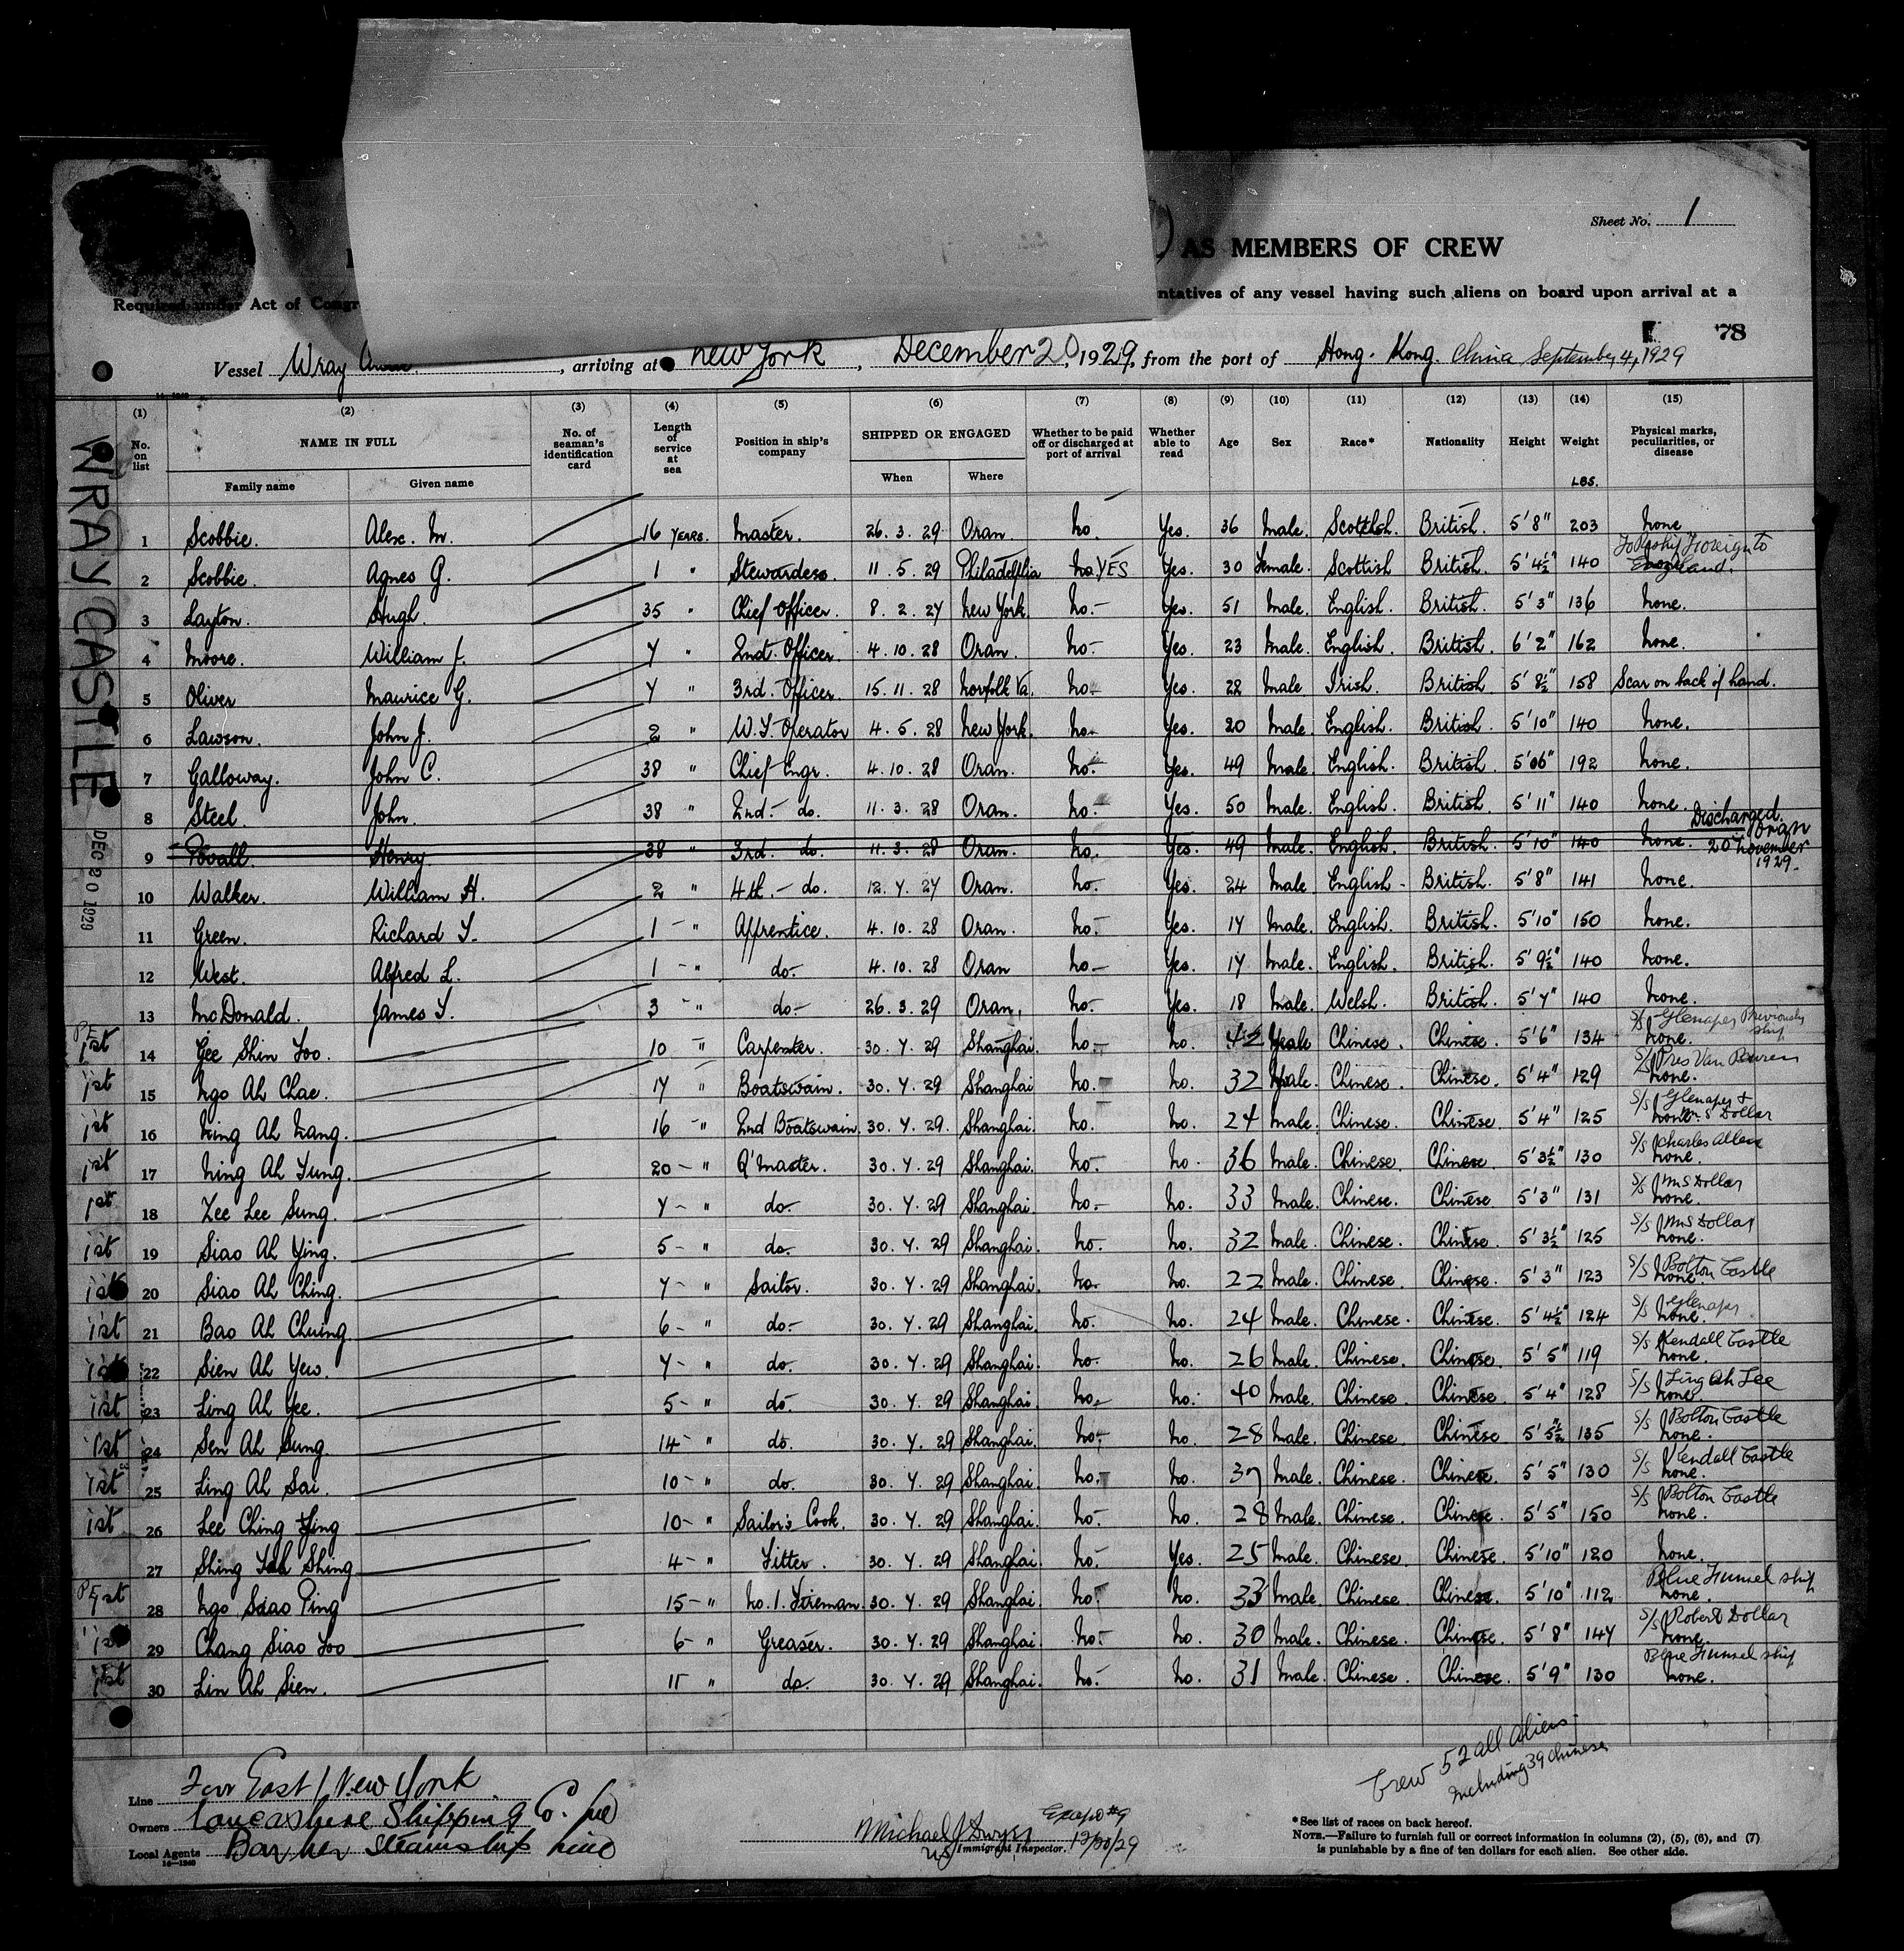 Sheet No. 1
AS MEMBERS OF CREW
Required under Act of Congr
ntatives of any vessel having such aliens on board upon arrival at a
78
Vessel Wray , arriving at New York , December 20, 1929, from the port of Hong. Kong. China September 4, 1929
WRAY CASTLE
DEC 20 1929
(1) (2) (3) (4) (5) (6) (7) (8) (9) (10) (11) (12) (13) (14) (15)
No. on list NAME IN FULL No. of seaman's identification card Length of service at sea Position in ship's company SHIPPED OR ENGAGED Whether to be paid off or discharged at port of arrival Whether able to read Age Sex Race* Nationality Height Weight Physical marks, peculiarities, or disease
Family name Given name When Where LBS.
1 Scobbie. Alex. M. 16 YEARS. Master. 26. 3. 29 Oran. No. Yes. 36 Male. Scottish. British. 5'8" 203 None
2 Scobbie. Agnes G. 1 " Stewardess. 11. 5. 29 Philadelphia No YES Yes. 30 Female. Scottish British. 5'4½" 140 To Reship Foreign to England.
3 Layton. Hugh. 35 " Chief Officer. 8. 2. 27 New York. No.- Yes. 51 Male. English. British. 5'3" 136 None.
4 Moore. William J. 7 " 2nd. Officer. 4. 10. 28 Oran. No.- Yes. 23 Male. English. British. 6'2" 162 None.
5 Oliver Maurice G. 7 " 3rd. Officer. 15. 11. 28 Norfolk Va. No.- Yes. 22 Male Irish. British 5'8½" 158 Scar on back of hand.
6 Lawson. John J. 2 " W.T. Operator 4. 5. 28 New York. No.- Yes. 20 Male. English. British. 5'10" 140 None.
7 Galloway. John C. 38 " Chief Engr. 4. 10. 28 Oran. No.- Yes. 49 Male. English. British. 5'06" 192 None.
8 Steel. John. 38 " 2nd.- do. 11. 3. 28 Oran. No.- Yes. 50 Male. English. British. 5'11" 140 None.
9 Povall. Henry 38 " 3rd. do. 11. 3. 28 Oran. No. Yes. 49 Male. English. British. 5'10" 140 None. Discharged. Oran 20 November 1929.
10 Walker. William H. 2 " 4th.- do. 12. 7. 27 Oran. No. Yes. 24 Male English- British. 5'8" 141 None.
11 Green. Richard T. 1 - " Apprentice. 4. 10. 28 Oran. No.- Yes. 17 Male. English. British. 5'10" 150 None.
12 West. Alfred L. 1 - " do.- 4. 10. 28 Oran No.- Yes. 17 Male. English. British. 5'9½" 140 None.
13 McDonald. James T. 3 - " do.- 26. 3. 29 Oran. No.- Yes. 18 Male. Welsh. British. 5'7" 140 None.
1st 14 Gee Shin Foo. 10 - " Carpenter. 30. 7. 29 Shanghai. No.- No. 42 Male Chinese. Chinese. 5'6" 134 S/S Glenapex Previously ship None.
1st 15 Ngo Ah Chae. 17 " Boatswain. 30. 7. 29 Shanghai No. No. 32 Male. Chinese. Chinese. 5'4" 129 S/S Pres Van Buren None.
1st 16 Ning Ah Nang. 16 - " 2nd Boatswain. 30. 7. 29. Shanghai. No. No. 24 Male. Chinese. Chinese. 5'4" 125 S/S Glenapex & M.S Dollar None
1st 17 Ning Ah Tung. 20 - " Q'Master. 30. 7. 29 Shanghai. No. No. 36 Male. Chinese. Chinese. 5'3½" 130 S/S Charles Allen None.
1st 18 Zee Lee Sung. 7 - " do.- 30. 7. 29 Shanghai. No.- No. 33 Male. Chinese. Chinese 5'3" 131 S/S M S Dollar None.
1st 19 Siao Ah Ying. 5 - " do. 30. 7. 29 Shanghai. No. No. 32 Male. Chinese. Chinese. 5'3½" 125 S/S M S Dollar None.
1st 20 Siao Ah Ching. 7 - " Sailor. 30. 7. 29 Shanghai. No. No. 22 Male. Chinese. Chinese. 5'3" 123 S/S Bolton Castle None.
1st 21 Bao Ah Chuing. 6 - " do.- 30. 7. 29 Shanghai. No. No. 24 Male. Chinese. Chinese. 5'4½" 124 S/S Glenapex None.
1st 22 Sien Ah Yew. 7 - " do. 30. 7. 29 Shanghai. No. No. 26 Male. Chinese. Chinese. 5'5" 119 S/S Kendall Castle None.
1st 23 Ling Ah Yee. 5 - " do. 30. 7. 29 Shanghai. No. No. 40 Male. Chinese. Chinese. 5'4" 128 S/S Ling Ah Lee None
1st 24 Sen Ah Sung. 14 - " do. 30. 7. 29 Shanghai. No. No. 28 Male. Chinese. Chinese 5'5½" 135 S/S Bolton Castle None.
1st 25 Ling Ah Sai. 10 - " do. 30. 7. 29 Shanghai. No. No. 37 Male. Chinese. Chinese. 5'5" 130 S/S Kendall Castle None.
1st 26 Lee Ching Ying 10 - " Sailor's Cook. 30. 7. 29 Shanghai. No. No. 28 Male. Chinese. Chinese. 5'5" 150 S/S Bolton Castle None.
27 Shing Yah Shing 4 - " Fitter. 30. 7. 29 Shanghai. No. Yes. 25 Male. Chinese. Chinese. 5'10" 120 None.
1st 28 Ngo Siao Ping 15 - " No. 1. Fireman. 30. 7. 29 Shanghai. No. No. 33 Male. Chinese. Chinese. 5'10" 112 Blue Funnel ship None.
1st 29 Chang Siao Foo 6 - " Greaser. 30. 7. 29 Shanghai. No.- No. 30 Male. Chinese. Chinese. 5'8" 147 S/S Robert Dollar None.
1st 30 Lin Ah Sien. 11 " do. 30. 7. 29 Shanghai. No. No. 31 Male. Chinese Chinese. 5'9" 130 Blue Funnel ship None.
Crew 52 all aliens.
Including 39 Chinese
Line Far East / New York.
Owners Lancashire Shipping Co.
Local Agents Barber Steamship Line
16—1940
Michael J Dwyer
US Immigrant Inspector. 12/20/29
*See list of races on back hereof.
NOTE.—Failure to furnish full or correct information in columns (2), (5), (6), and (7)
is punishable by a fine of ten dollars for each alien. See other side.